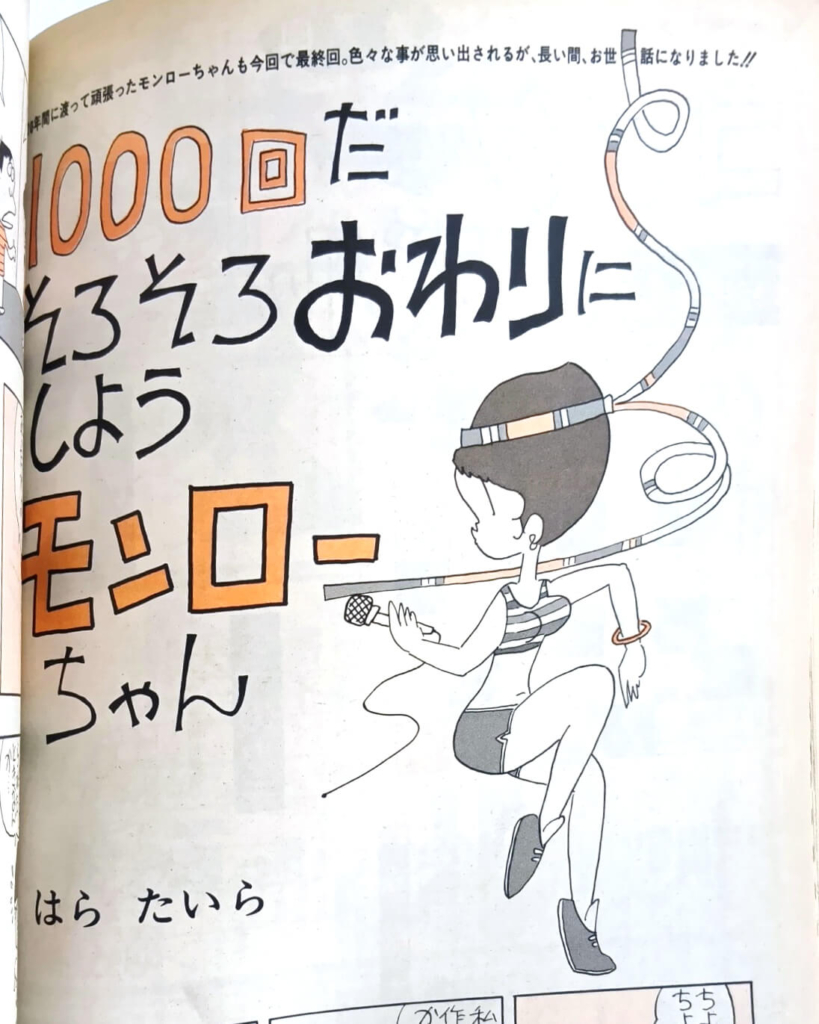 年間に渡って頑張ったモンローちゃんも今回で最終回。色々な事が思い出されるが、長い間、お世話になりました!!
1000回だ
そろそろおわりに
しよう
モンロー
ちゃん
はら たいら
私
作
か
ちよ
ちよ